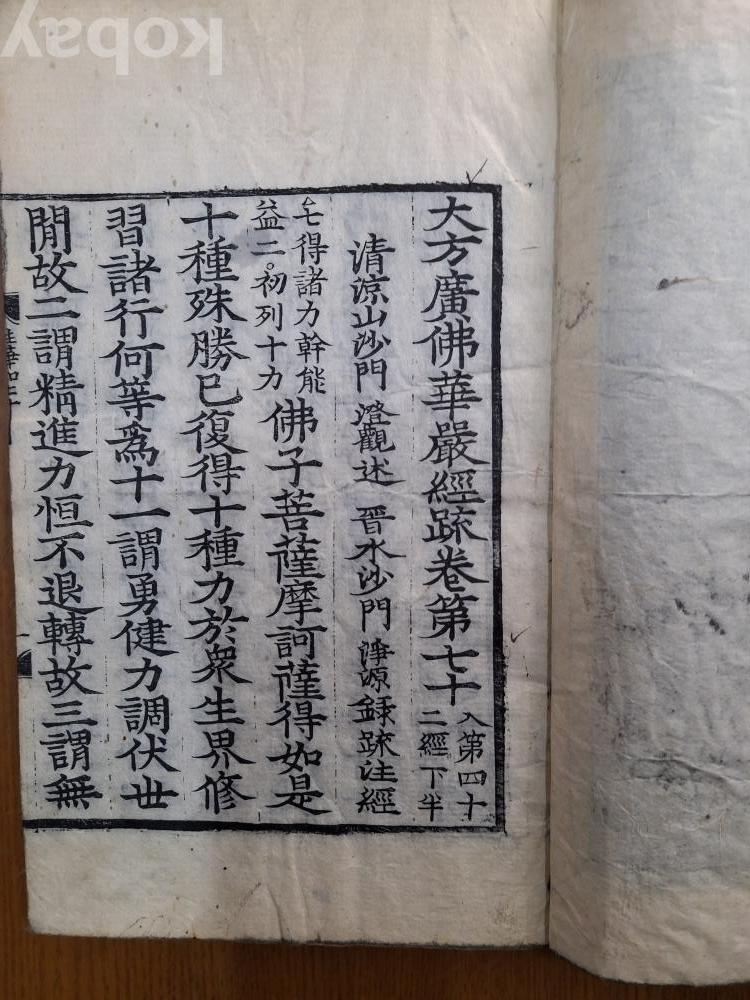 大方廣佛華嚴經䟽卷第七十
入第四十
二經下半
清涼山沙門 澄觀述 晉水沙門 淨源録䟽注經
七得諸力幹能
益二初列十力
佛子菩薩摩訶薩得如是
十種殊勝已復得十種力於衆生界修
習諸行何等爲十一謂勇健力調伏世
閒故二謂精進力恒不退轉故三謂無
kobay